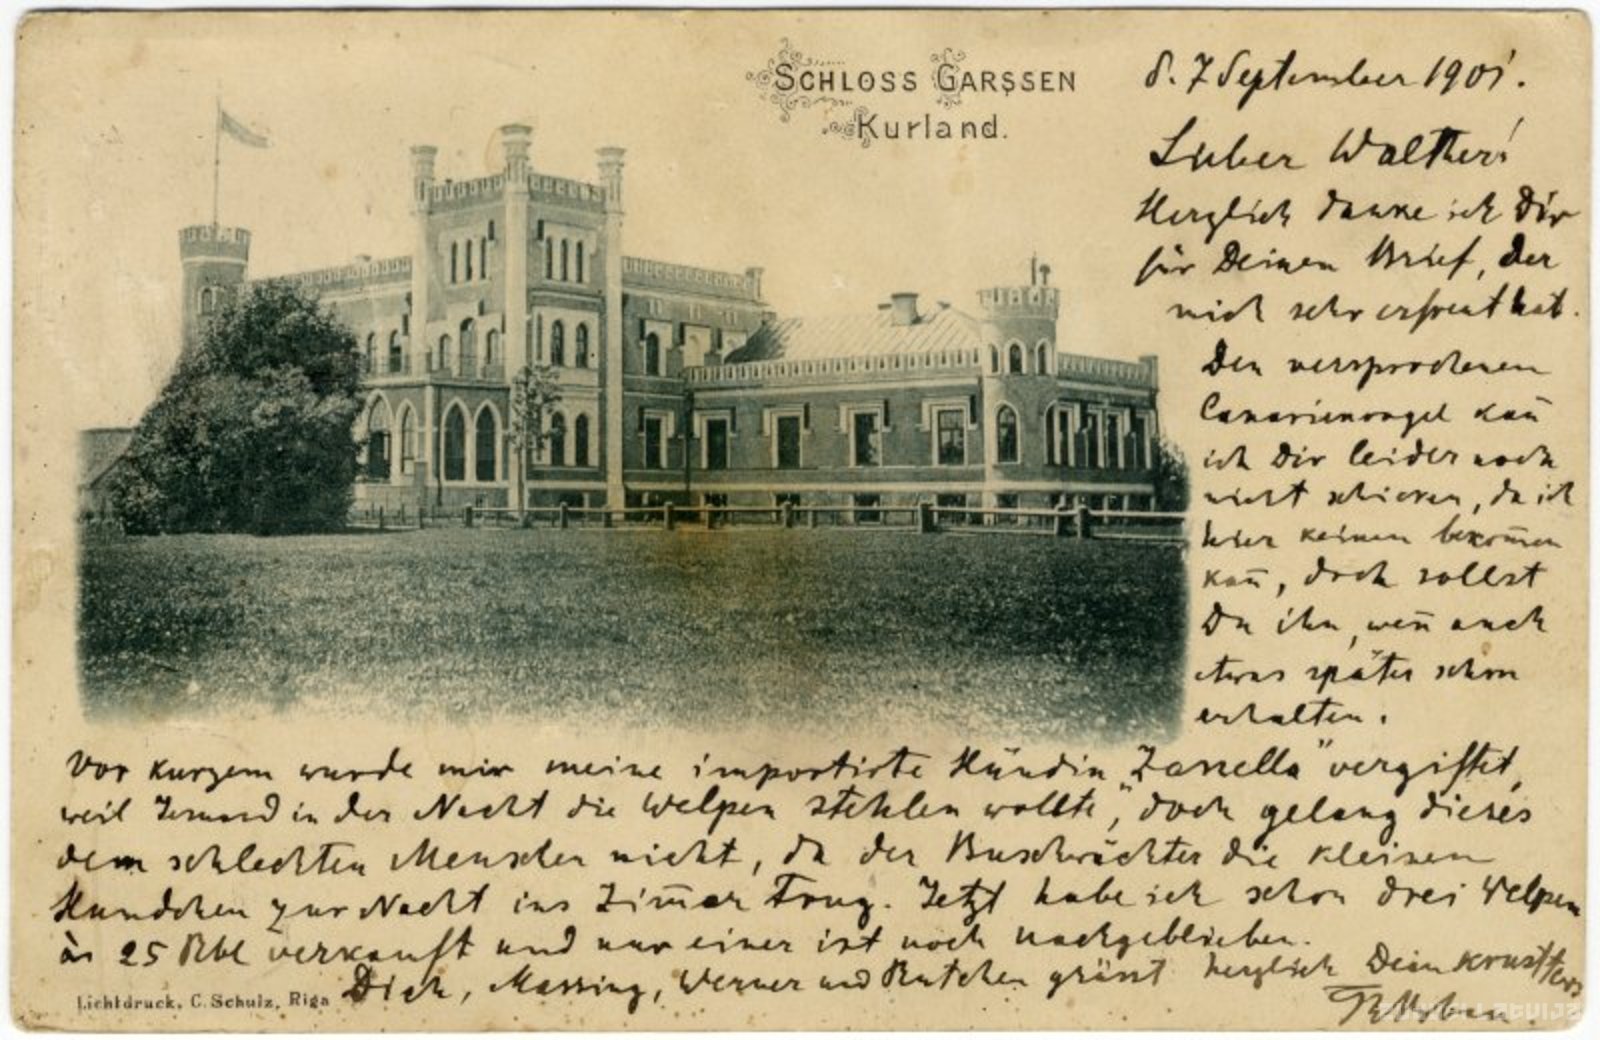 SCHLOSS GARSSEN
Kurland.
d. 7 September 1901.
Lieber Walther!
Herzlich danke ich Dir
für Deinen Brief, der
mich sehr erfreut hat.
Den versprochenen
Canarienvogel kan̄
ich Dir leider noch
nicht schicken, da ich
hier keinen bekom̄en
kan̄, doch sollst
Du ihn, wen̄ auch
etwas später schon
erhalten.
Vor kurzem wurde mir meine importirte Hündin „Zanella" vergiftet,
weil Jemand in der Nacht die Welpen stehlen wollte, doch gelang dieses
dem schlechten Menschen nicht, da der Buschwächter die kleinen
Hundchen zur Nacht ins Zim̄er trug. Jetzt habe ich schon drei Welpen
à 25 Rbl verkauft und nur einer ist noch nachgeblieben.
Dich, Massing, Werner und grüsst herzlich Dein
Lichtdruck, C. Schulz, Riga